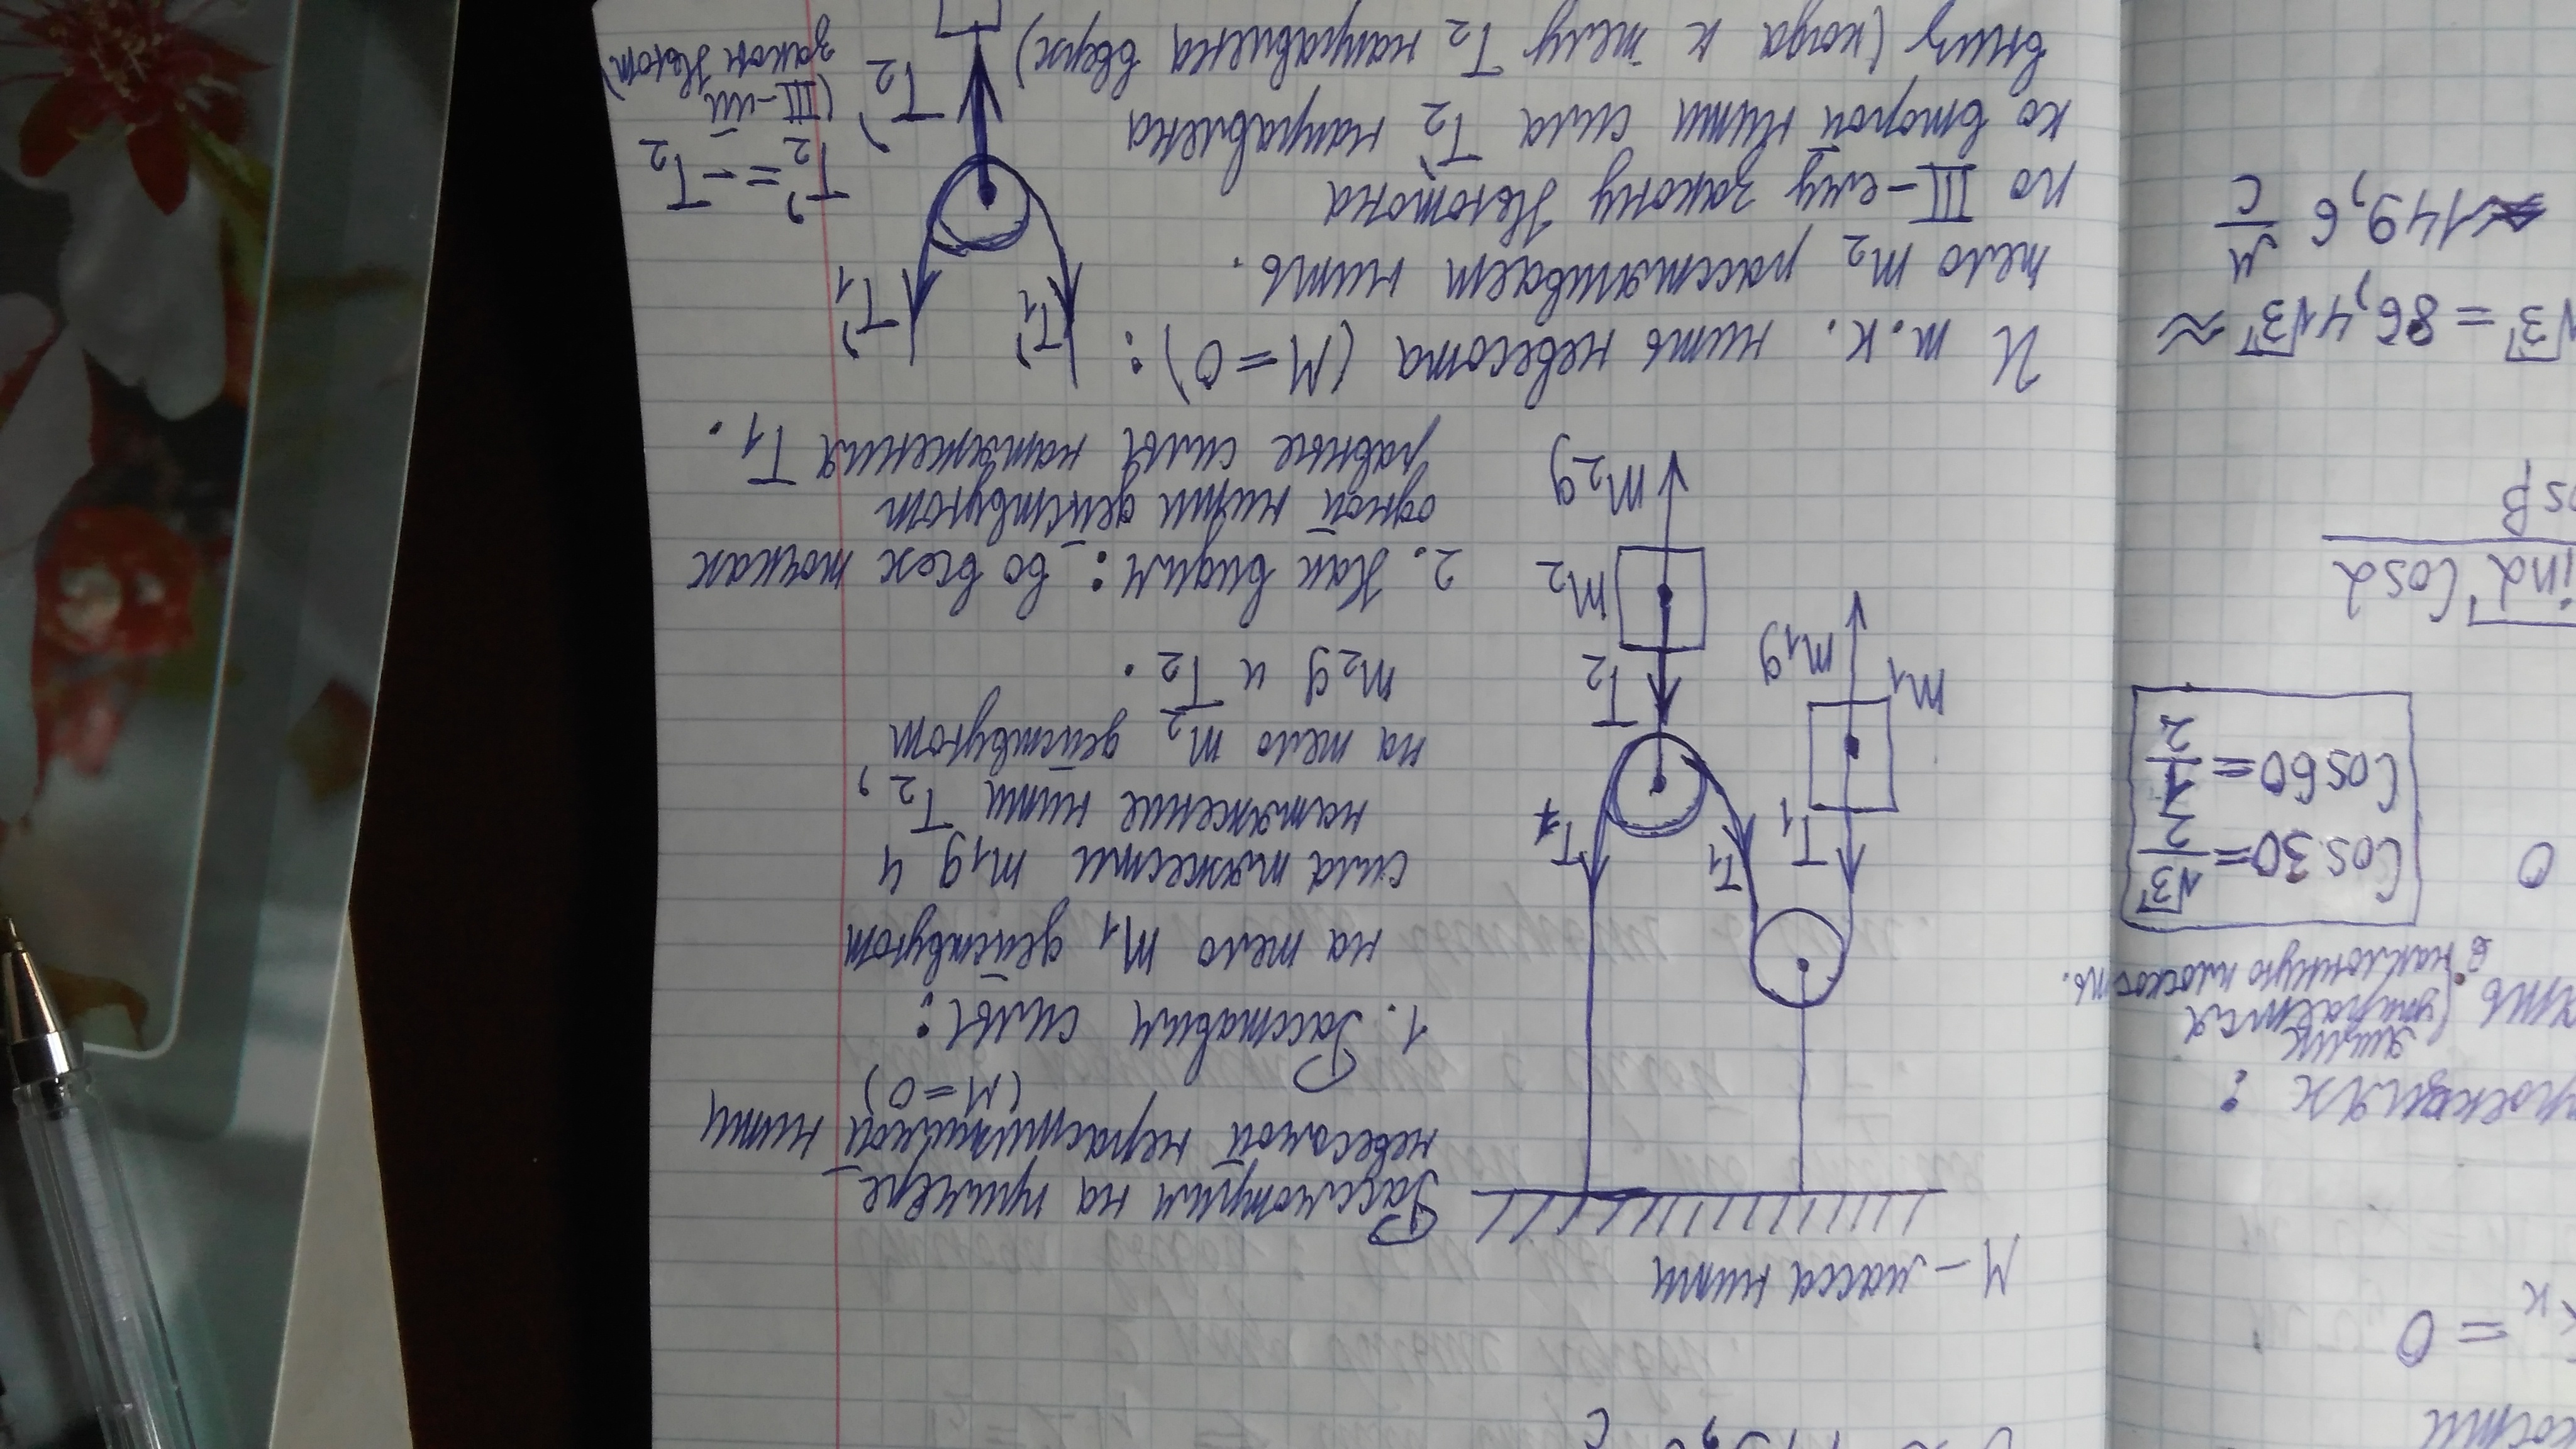 М – масса нити
Рассмотрим на примере
невесомой нерастяжимой нити
(М = 0)
1. Расставим силы:
на тело m₁ действуют
сила тяжести m₁g и
натяжение нити T₂,
на тело m₂ действуют
m₂g и T₂.
2. Как видим: во всех точках
одной нити действуют
равные силы натяжения T₁.
T₁
T₁
T₁
m₁
m₁g
T₂
m₂
m₂g
И т.к. нить невесома (М = 0):
тело m₂ растягивает нить.
по III-ему закону Ньютона
ко второй нити сила T₂' направлена
вниз (когда к телу T₂ направлена вверх)
T₁'
T₁'
T₂'
T₂' = – T₂
(III-ий
закон Ньют)
Cos 30 = √3/2
Cos 60 = 1/2
проекциях:
ящик
(упирается
в наклонную плоскость.
0
ind Cosα
os β
√3 = 86,4√3 ≈
≈ 149,6 м/с
к = 0